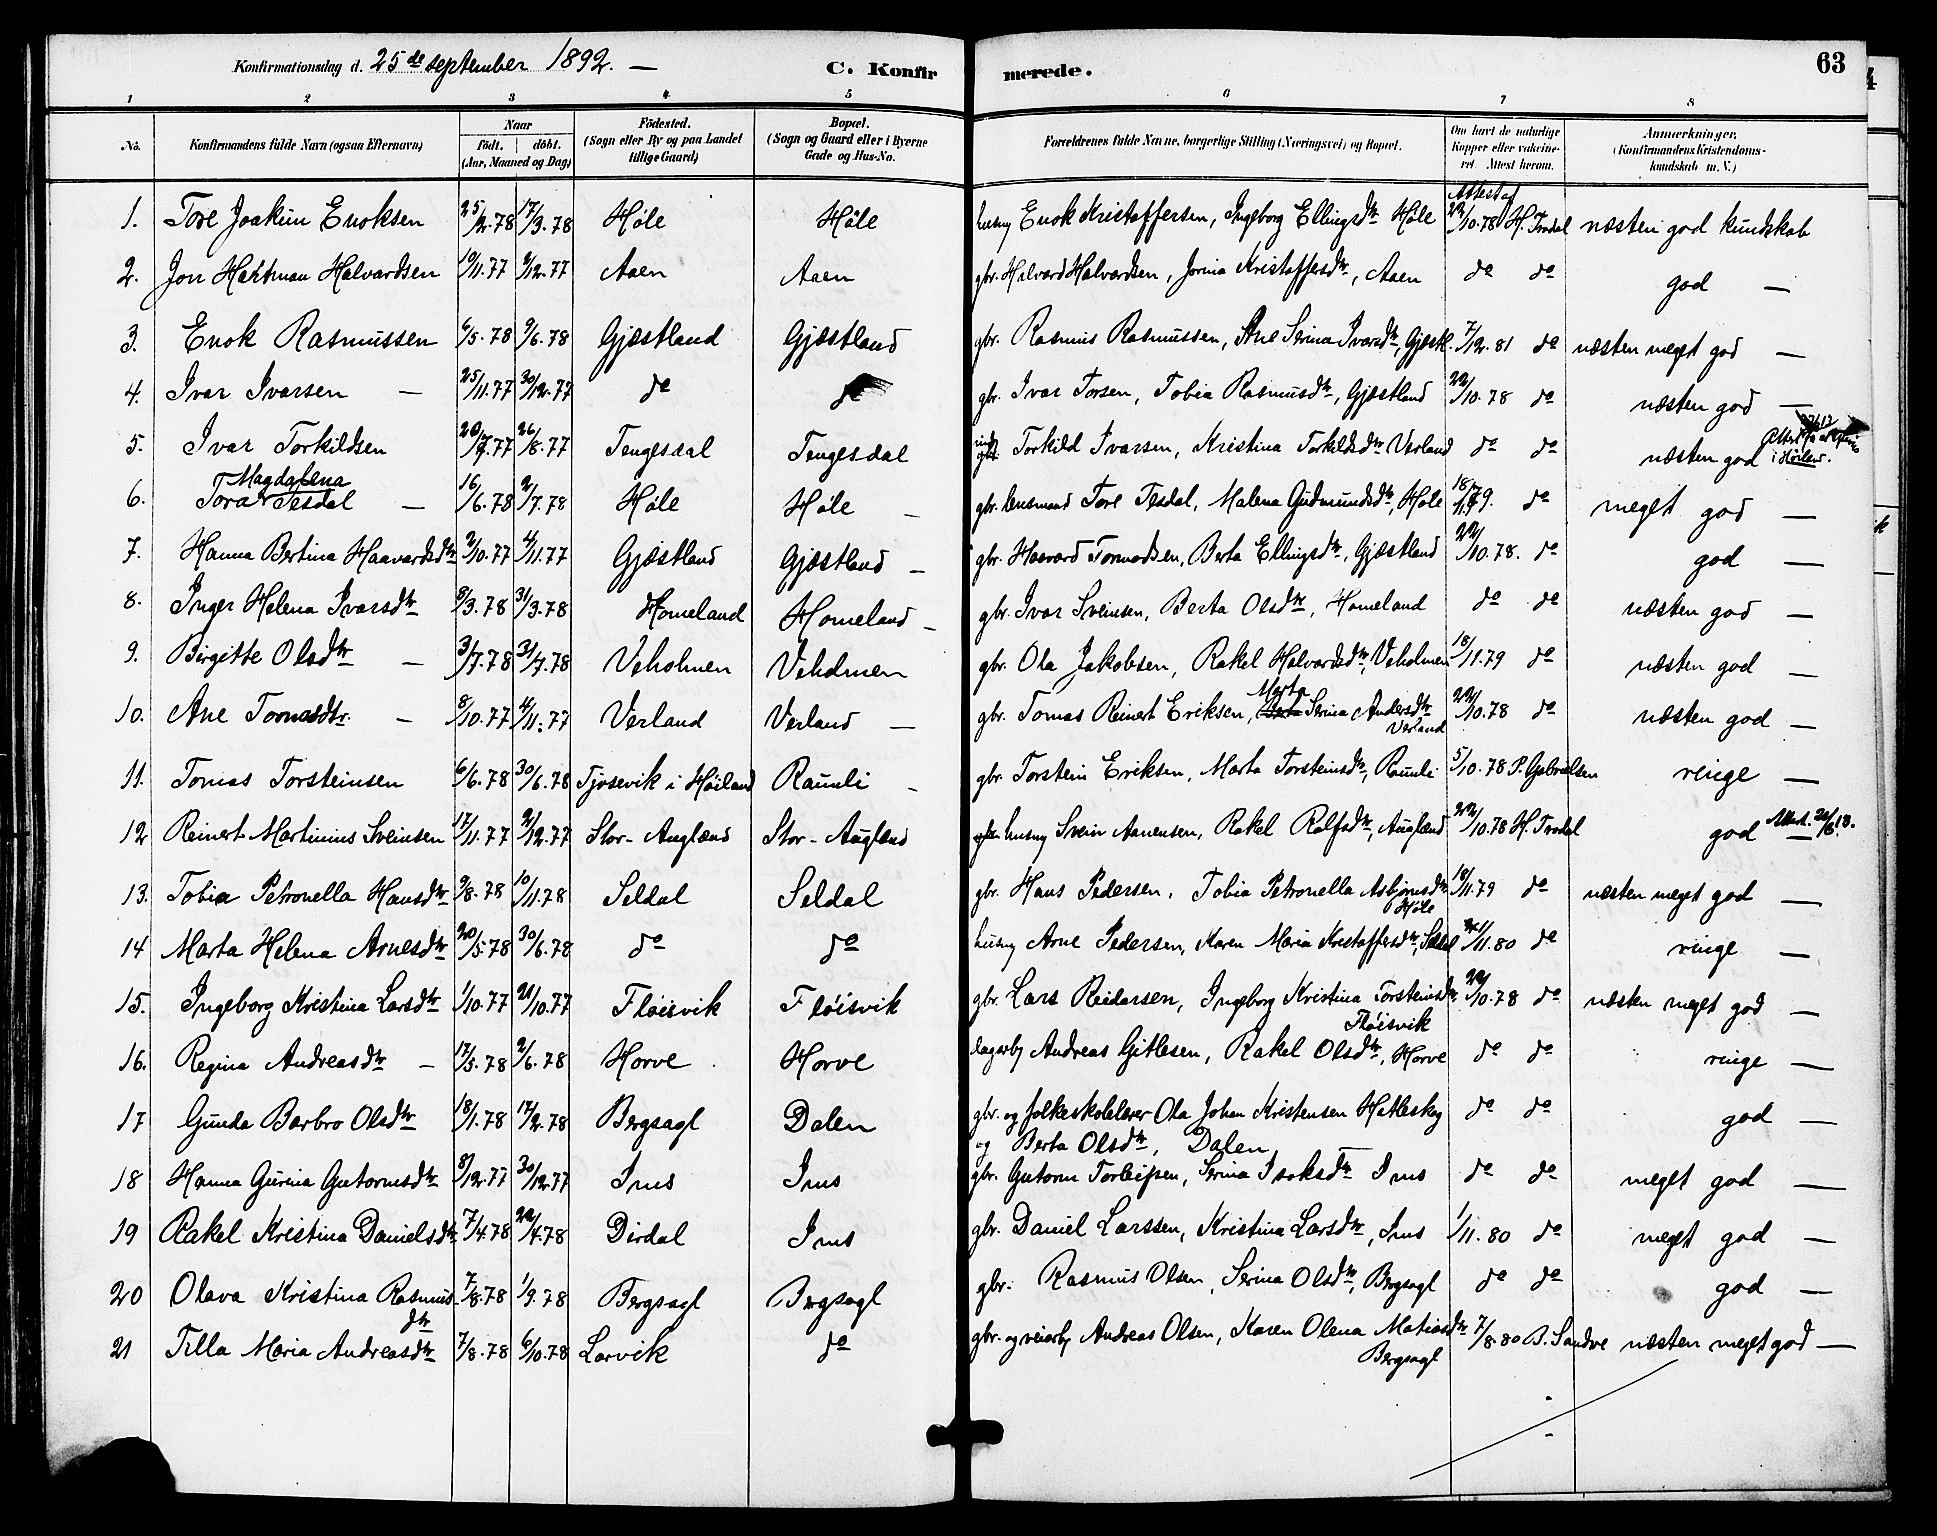 Konfirmationsdag d. 25de september 1892. — C. Konfirmerede. 63
1 2 3 4 5 6 7 8
No. Konfirmandens fulde Navn (ogsaa Efternavn) Naar født. døbt. (Aar, Maaned og Dag) Födested. (Sogn eller By og paa Landet tillige Gaard) Bopæl. (Sogn og Gaard eller i Byerne Gade og Hus-No.) Forældrenes fulde Navne, borgerlige Stilling (Næringsvei) og Bopæl. Om havt de naturlige Kopper eller vakcineret. Attest herom. Anmærkninger. (Konfirmandens Kristendomskundskab m. V.)
1. Tore Joakim Enoksen 25/2.78 17/3.78 Høle Høle husm Enok Kristoffersen, Ingeborg Ellingsdtr Høle Attest af 22/10.78 H. Trodal næsten god kundskab
2. Jon Hartman Halvardsen 10/11.77 9/12.77 Aaen Aaen gbr. Halvard Halvardsen, Jorina Kristoffersdtr, Aaen do do god —
3. Enok Rasmussen 6/5.78 9/6.78 Gjæstland Gjæstland gbr. Rasmus Rasmussen, Ane Serina Ivarsdtr, Gjæstl. 7/12.81 do næsten meget god —
4. Ivar Ivarsen — 25/11.77 30/12.77 do do gbr. Ivar Torsen, Tobia Rasmusdtr, Gjæstland 22/10.78 do næsten god —
5. Ivar Torkildsen 20/7.77 26/8.77 Tengesdal Tengesdal Torkild Ivarsen, Kristina Torkildsdtr Verland do do næsten god i Høiland.
6. Tora Magdalena Tesdal — 16/6.78 2/7.78 Høle Høle — gbr. lensmand Tore Tesdal, Malena Gudmundsdtr, Høle 18/11.79. do meget god —
7. Hanna Bertina Haavardsdtr 2/10.77 4/11.77 Gjæstland Gjæstland — gbr. Haavard Tormodsen, Berta Ellingsdtr, Gjæstland 22/10.78. do god —
8. Inger Helena Ivarsdtr 9/3.78 31/3.78 Homeland Homeland — gbr. Ivar Sveinsen, Berta Olsdtr, Homeland do do næsten god —
9. Birgitte Olsdtr — 3/7.78 31/7.78 Veholmen Veholmen gbr. Ola Jakobsen, Rakel Halvardsdtr, Veholmen 18/11.79 do næsten god —
10. Ane Tomasdtr. — 8/10.77 4/11.77 Verland Verland — gbr. Tomas Reinert Eriksen, Marta Serina Andersdtr Verland 22/10.78 do næsten god —
11. Tomas Torsteinsen 6/6.78 30/6.78 Tjosevik i Høiland Raunli — gbr. Torstein Eriksen, Marta Torsteinsdtr, Raunli 5/10.78 P. Gabrielsen ringe —
12 Reinert Martinius Sveinsen 17/11.77 2/12.77 Stor-Auglænd Stor-Auglænd husm Svein Aanensen, Rakel Rolfsdtr, Auglænd 22/10.78 H. Trodal god Attest. 20/6.18.
13. Tobia Petronella Hansdtr 9/8.78 10/11.78 Seldal Seldal gbr. Hans Pedersen, Tobia Petronella Asbjørnsdtr Høle 18/11.79 do næsten meget god —
14 Marta Helena Arnesdtr 20/5.78 30/6.78 do do husm Arne Pedersen, Karen Maria Kristoffersdtr, Seldal /11.80 do ringe —
15. Ingeborg Kristina Larsdtr 1/10.77 21/10.77 Fløisvik Fløisvik gbr. Lars Reidarsen, Ingeborg Kristina Torsteinsdtr Fløisvik 22/10.78 do næsten meget god —
16. Regina Andreasdtr — 17/3.78 2/6.78 Horve Horve dagarb Andreas Gitlesen, Rakel Olsdtr, Horve do do ringe —
17 Gunda Barbro Olsdtr 18/1.78 17/2.78 Bergsagl Dalen gbr. og folkeskolelærer Ola Johan Kristensen Hatleskog
og Berta Olsdtr, Dalen do do god —
18 Hanna Gurina Gutormsdtr 8/12.77 30/12.77 Ims Ims gbr. Gutorm Torleifsen, Serina Isaksdtr Ims do do meget god —
19 Rakel Kristina Danielsdtr 7/4.78 22/4.78 Dirdal Ims gbr. Daniel Larssen, Kristina Larsdtr, Ims 1/11.80 do meget god —
20 Olava Kristina Rasmusdtr 7/8.78 1/9.78 Bergsagl Bergsagl gbr. Rasmus Olsen, Serina Olsdtr, Bergsagl do do god —
21 Tilla Maria Andreasdtr 7/8.78 6/10.78 Larvik do gbr. og veiarb Andreas Olsen, Karen Olena Matiasdtr Bergsagl 7/8.80 B. Sandve næsten meget god —